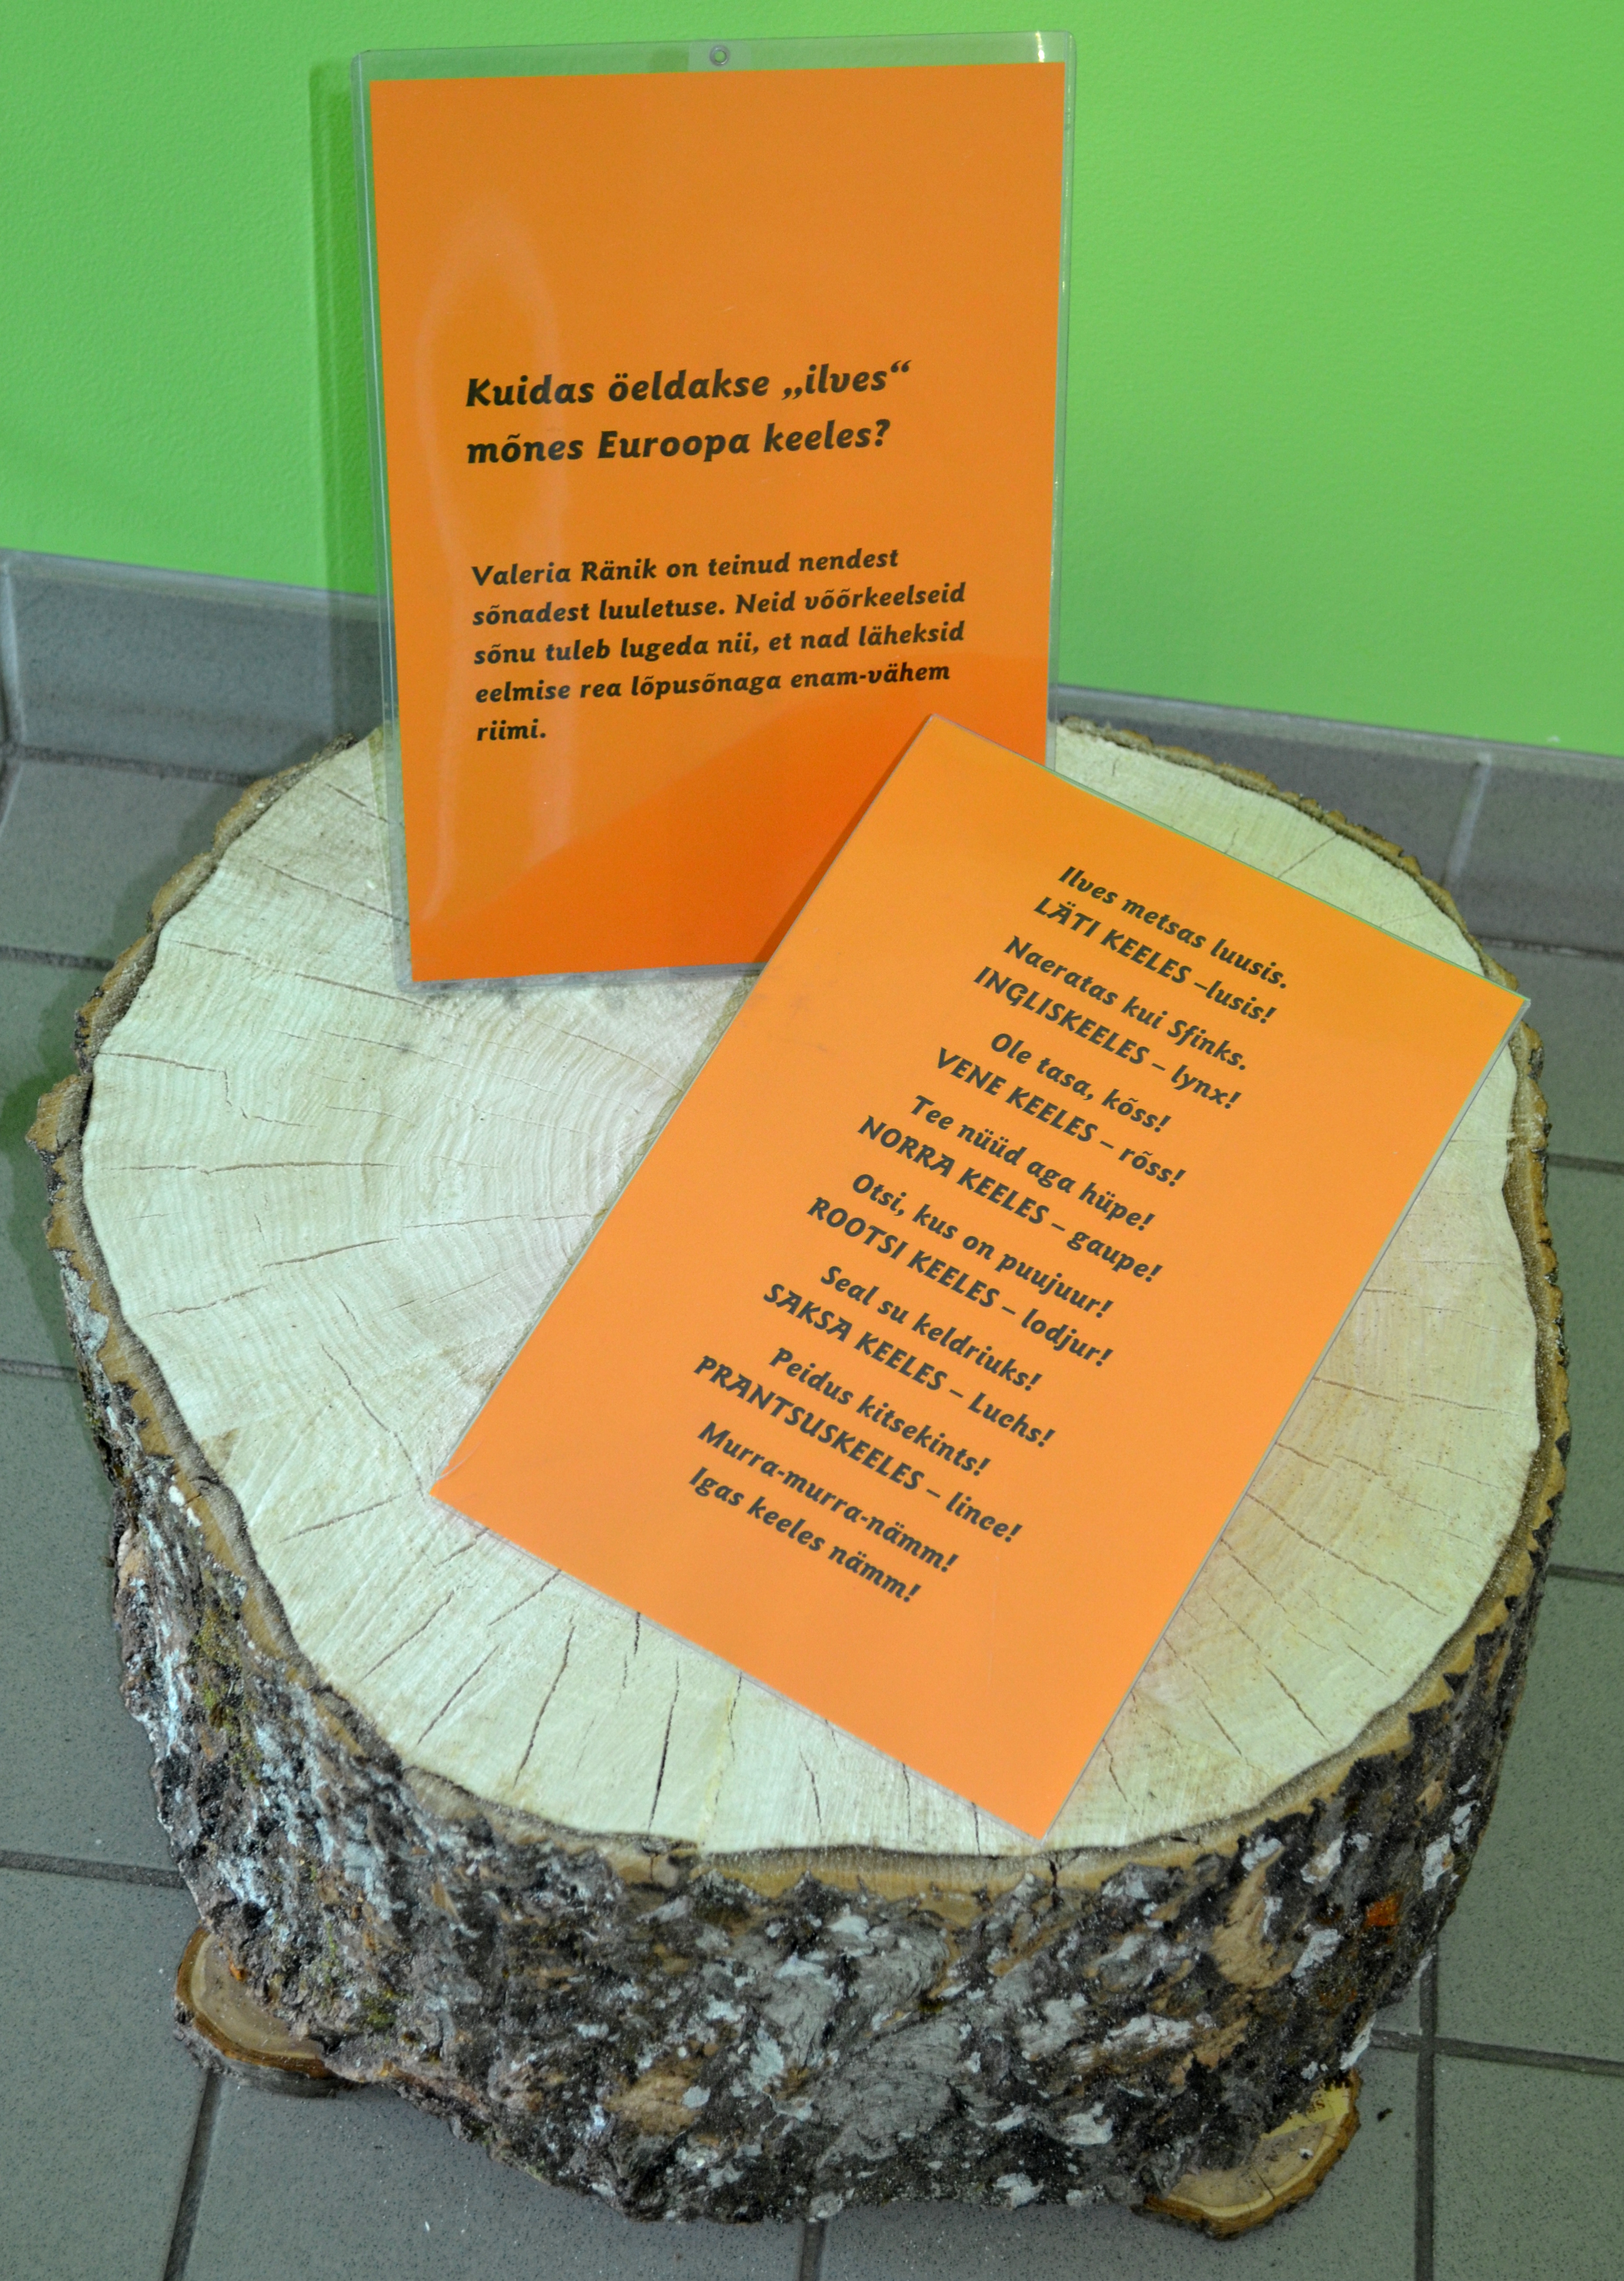 Kuidas öeldakse „ilves“
mõnes Euroopa keeles?
Valeria Ränik on teinud nendest
sõnadest luuletuse. Neid võõrkeelseid
sõnu tuleb lugeda nii, et nad läheksid
eelmise rea lõpusõnaga enam-vähem
riimi.
Ilves metsas luusis.
LÄTI KEELES –lusis!
Naeratas kui Sfinks.
INGLISKEELES – lynx!
Ole tasa, kõss!
VENE KEELES – rõss!
Tee nüüd aga hüpe!
NORRA KEELES – gaupe!
Otsi, kus on puujuur!
ROOTSI KEELES – lodjur!
Seal su keldriuks!
SAKSA KEELES – Luchs!
Peidus kitsekints!
PRANTSUSKEELES – lince!
Murra-murra-nämm!
Igas keeles nämm!